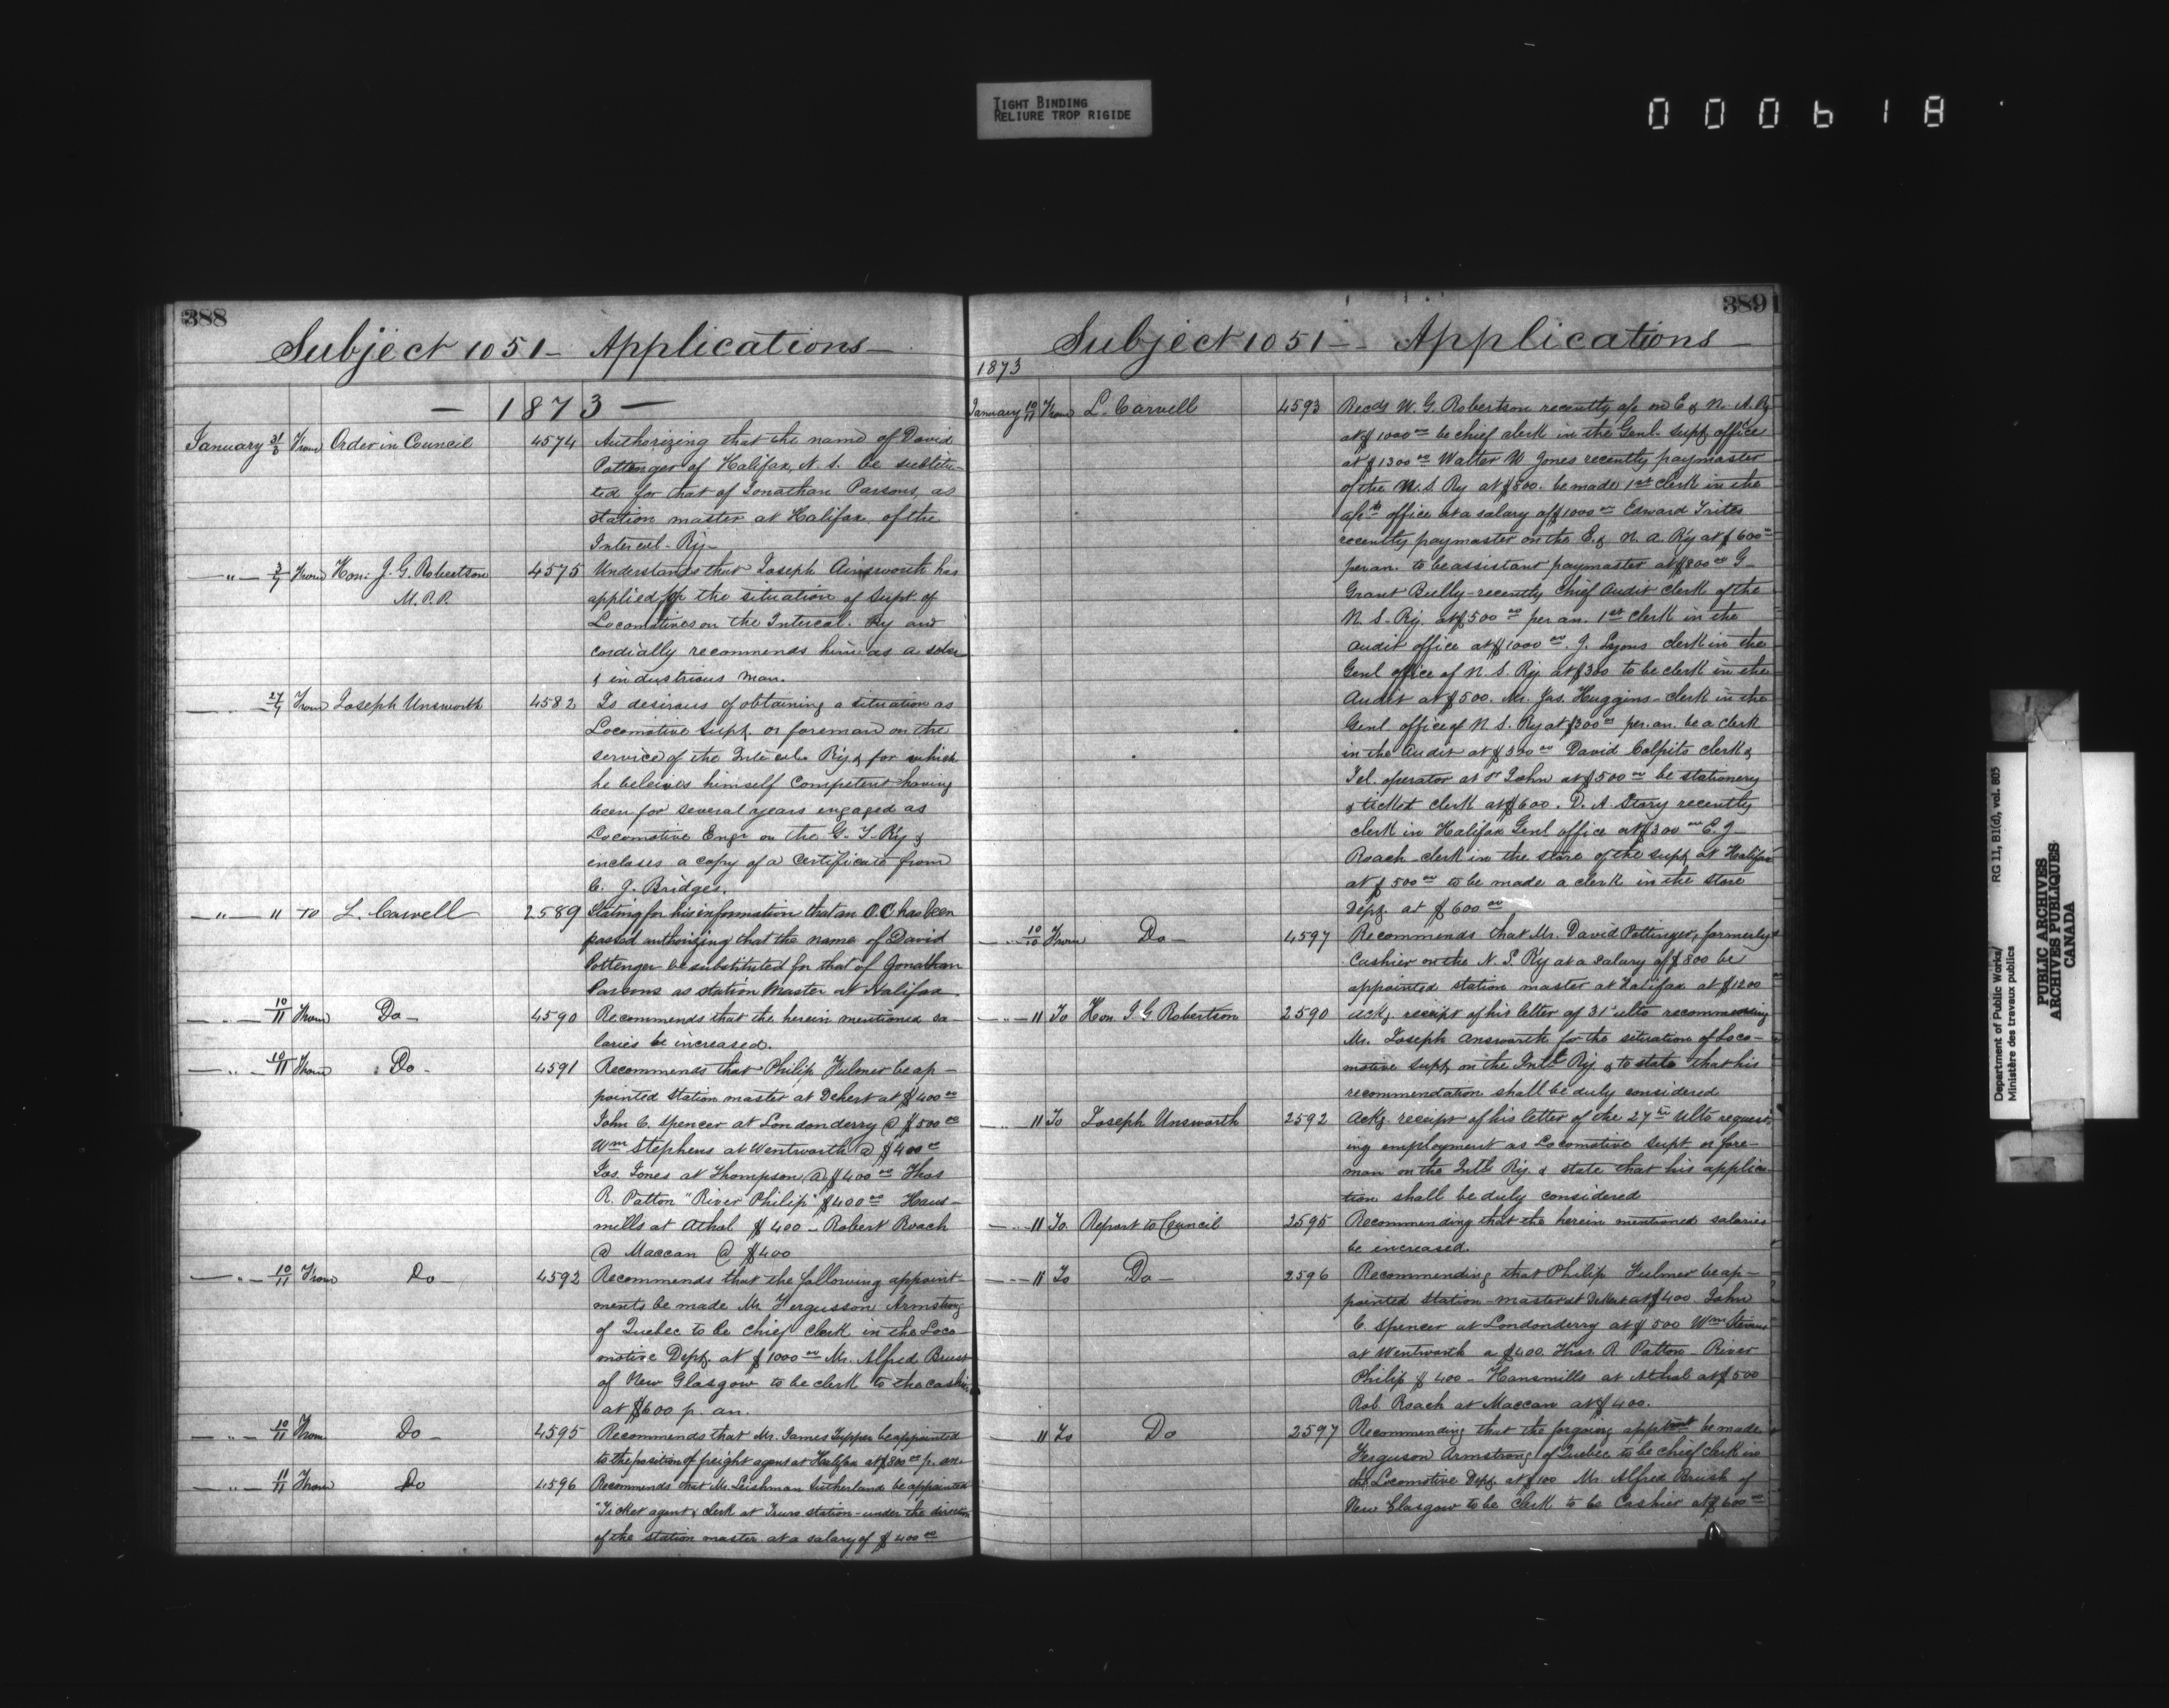 TIGHT BINDING
RELIURE TROP RIGIDE
000618
388
Subject 1051 - Applications -
- 1873 -
January 31/8 From Order in Council 4574 Authorizing that the name of David
Pottenger of Halifax, N. S. be substitu-
ted for that of Jonathan Parsons, as
station master at Halifax of the
Intercol. Ry -
- " - 3/7 From Hon. J. G. Robertson 4575 Understands that Joseph Ainsworth has
M.P.P. applied for the situation of Supt. of
Locomotives on the Intercol. Ry and
cordially recommends him as a sober
& industrious man.
27/7 From Joseph Unsworth 4582 Is desirous of obtaining a situation as
Locomotive Supt. or foreman on the
service of the Intercol. Ry & for which
he beleives himself Competent having
been for several years engaged as
Locomotive Engr on the G. T. Ry &
incloses a copy of a Certificate from
C. J. Bridges.
- " - 11 To L. Carvell 2589 Stating for his information that an O.C has been
passed authorizing that the name of David
Pottenger be substituted for that of Jonathan
Parsons as station Master at Halifax.
- " - 10/11 From Do - 4590 Recommends that the herein mentioned sa-
laries be increased.
- " - 10/11 From Do - 4591 Recommends that Philip Fulmer be ap-
pointed Station master at Debert at $400 00
John C. Spencer at Londonderry @ $500 00
Wm Stephens at Wentworth @ $400 00
Jas. Jones at Thompson @ $400 00 Thos
R. Patton "River Philip" $400 00 Hans-
mills at Athol $400 - Robert Roach
@ Maccan @ $400
- " - 10/11 From Do - 4592 Recommends that the following appoint-
ments be made Mr Fergusson Armstrong
of Quebec to be Chief Clerk in the Loco-
motive Dept. at $1000 00 Mr. Alfred Brush
of New Glasgow to be clerk to the cashier
at $600 p. an.
- " - 10/11 From Do - 4595 Recommends that Mr. James Tupper be appointed
to the position of freight agent at Halifax at $800 00 p. an
- " - 11/11 From Do 4596 Recommends that Mr. Leishman Sutherland be appointed
Ticket agent & clerk at Truro station - under the direction
of the station master at a salary of $400 00
389
Subject 1051 - Applications -
1873
January 10/11 From L. Carvell 4593 Recds W. G. Robertson recently a/c on E & N. A. Ry
at $1000 00 be chief clerk in the Genl. Supt. office
at $1300 00 Walter W Jones recently paymaster
of the N. S Ry at $800. be made 1st Clerk in the
a/cts office at a salary of $1000 00 Edward Trites
recently paymaster on the E. & N. A. Ry at $600 00
per an. to be assistant paymaster at $800 00 G
Grant Bully - recently Chief Audit clerk of the
N. S. Ry. at $500 00 per an. 1st Clerk in the
Audit office at $1000 00. J. Lyons clerk in the
Genl office of N. S. Ry at $300 to be clerk in the
Audit at $500. Mr. Jas. Huggins - clerk in the
Genl. office of N. S. Ry at $300 00 per. an. be a clerk
in the Audit at 00 David Colpits clerk &
Tel. operator at St John at $500 00 be stationery
& ticket clerk at $600. D. A. Story recently
clerk in Halifax Genl office at $300 00 E. J -
Roach - clerk in the store of the supt. at Halifax
at $500 00 to be made a clerk in the store
Dept. at $600 00
- " - 10/10 From Do - 4597 Recommends that Mr. David Pottinger, formerly
Cashier on the N. S. Ry at a salary of $800 be
appointed station master at Halifax at $1200
- " - 11 To Hon J. G Robertson 2590 Ackg. receipt of his letter of 31st ulto recommending
Mr. Joseph Answorth for the situation of Loco-
motive Supt. on the Intl Ry. & to state that his
recommendation shall be duly considered
- " - 11 To Joseph Unsworth 2592 Ackg. receipt of his letter of the 27th Ulto request-
ing employment as Locomotive Supt. or fore-
man on the Intl Ry. & state that his applica-
tion shall be duly considered
- " - 11 To Report to Council 2595 Recommending that the herein mentioned salaries
be increased.
- " - 11 To Do - 2596 Recommending that Philip Fulmer be ap-
pointed Station-master at Debert at $400 John
C. Spencer at Londonderry at $500 Wm Stevens
at Wentworth a $400 Thos. R Patton - River
Philip $400 - Hansmills at Athol at $500
Rob. Roach at Maccan at $400.
11 To Do 2597 Recommending that the forgoing be made
Ferguson Armstrong of Quebec to be chief clerk in
the Locomotive Dept. at $100 Mr Alfred Brush of
New Glasgow to be clerk to be Cashier at $600 00
Department of Public Works/ RG 11, B1(d), vol. 805
Ministère des travaux publics
PUBLIC ARCHIVES
ARCHIVES PUBLIQUES
CANADA